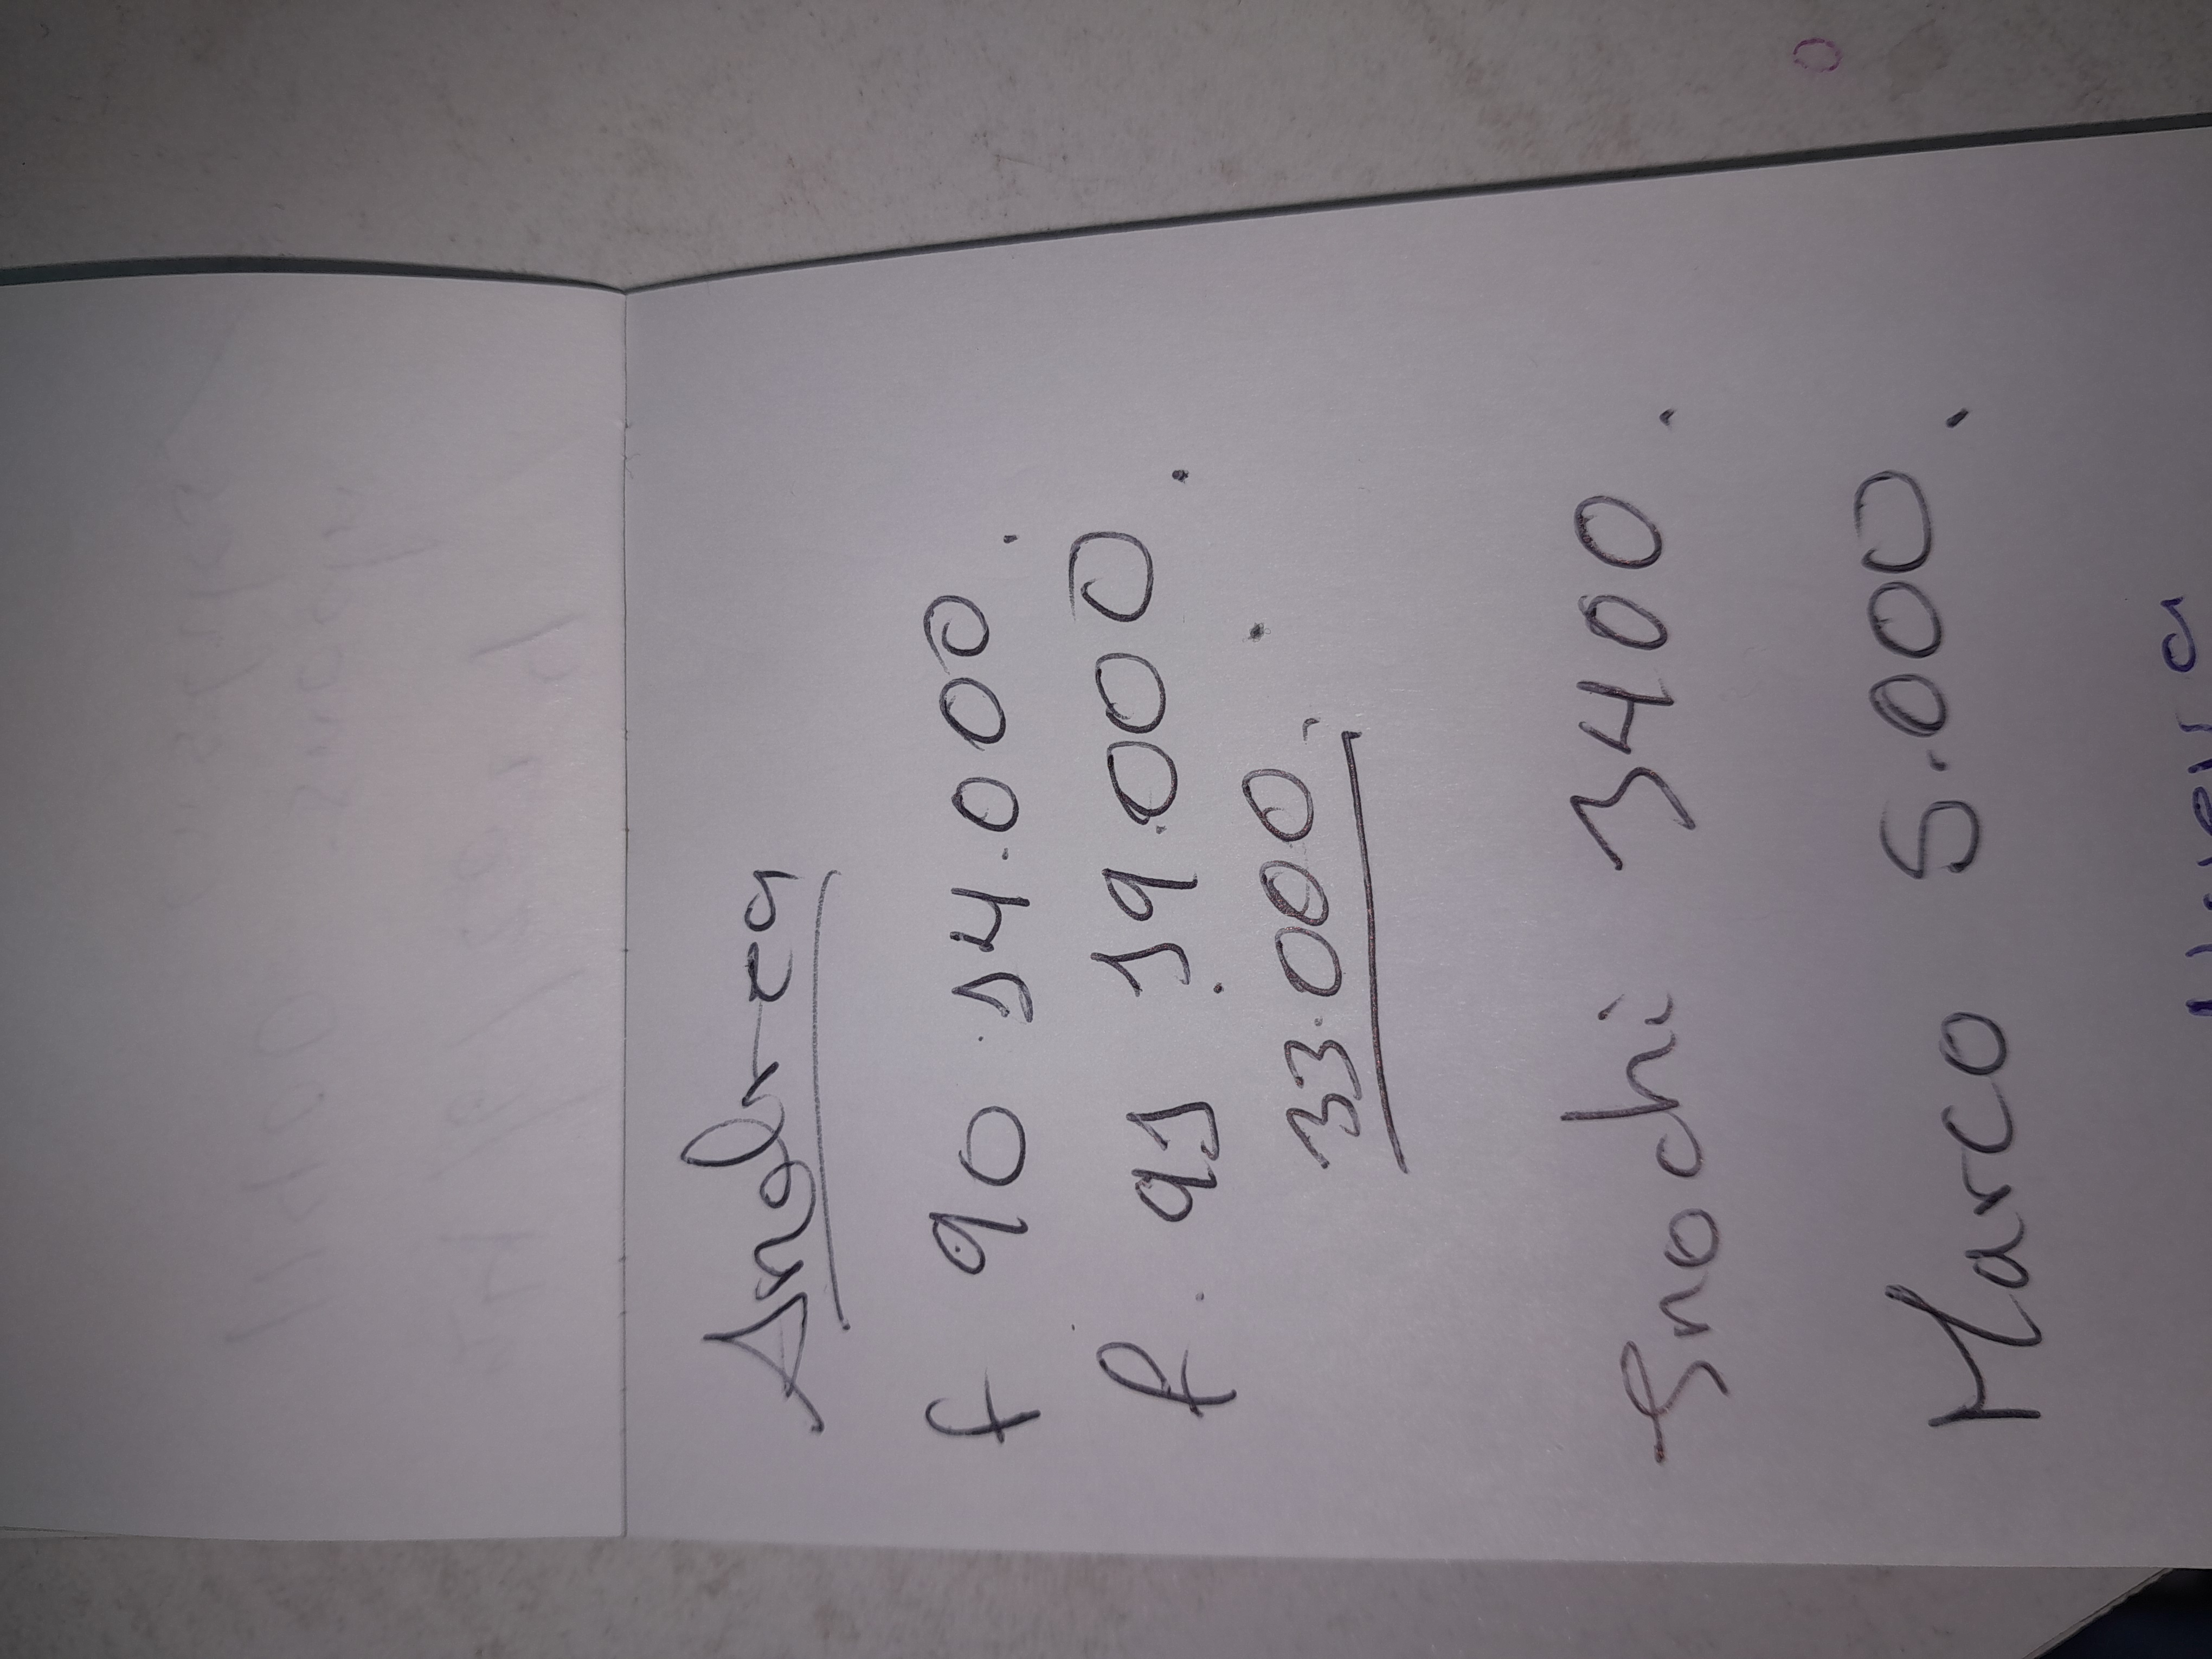 Andrea
f 90 14.000.
f. 91 19.000.
33.000.
Snochi 3400.
Marco 5.000.